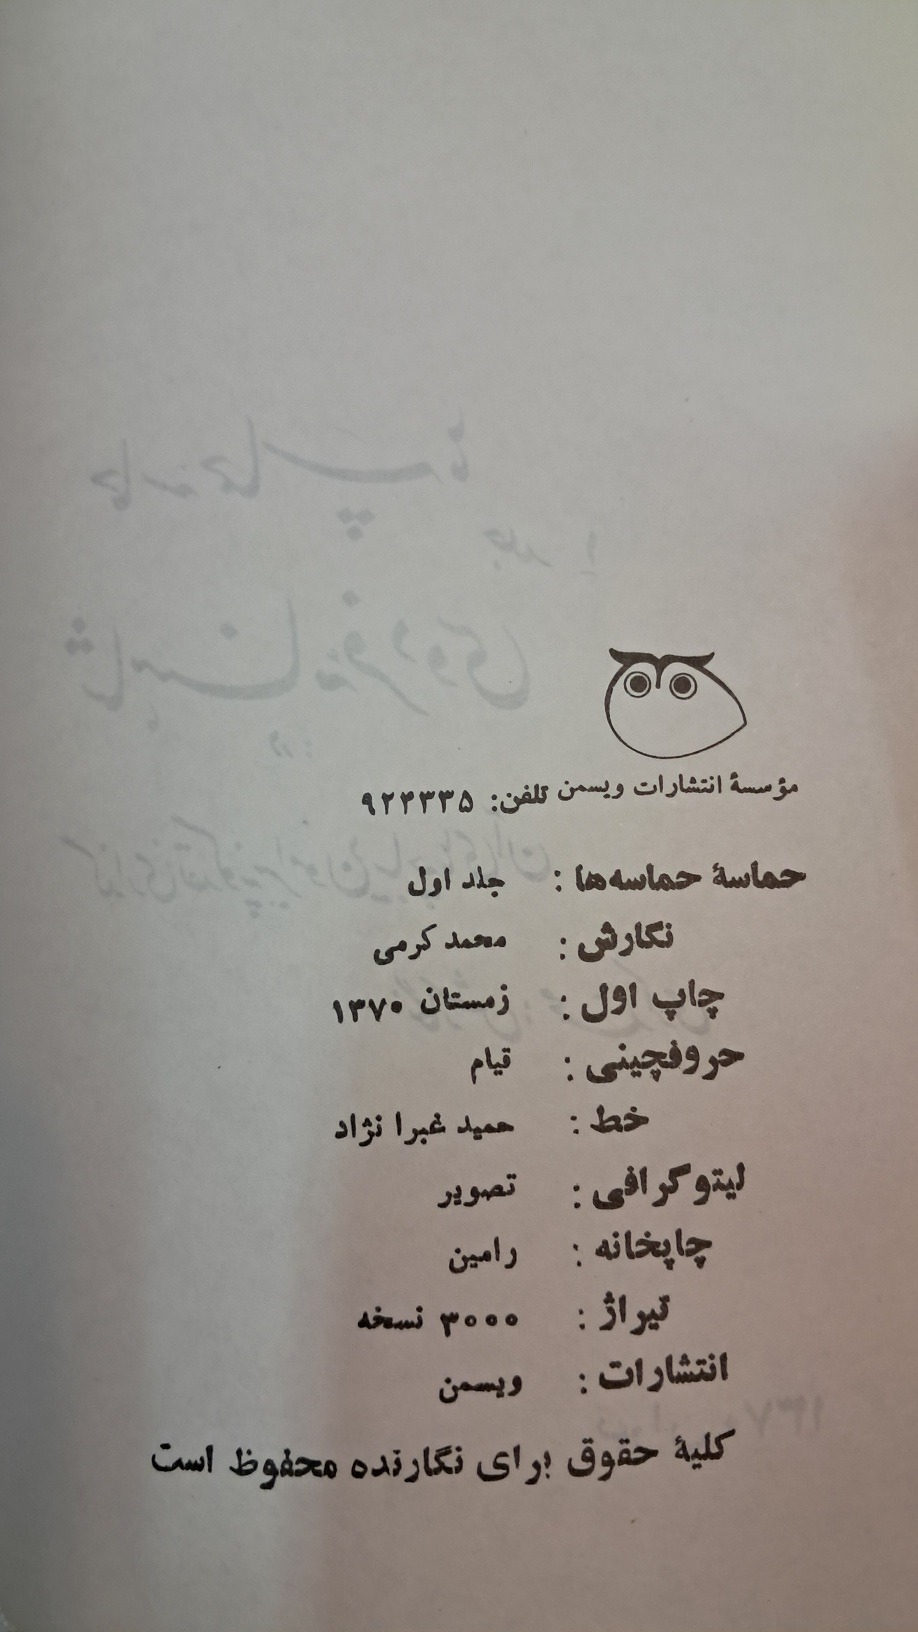 مؤسسهٔ انتشارات ویسمن تلفن: ۹۲۴۳۳۵
حماسهٔ حماسه‌ها : جلد اول
نگارش : محمد کرمی
چاپ اول : زمستان ۱۳۷۰
حروفچینی : قیام
خط : حمید غبرا نژاد
لیتوگرافی : تصویر
چاپخانه : رامین
تیراژ : ۳۰۰۰ نسخه
انتشارات : ویسمن
کلیهٔ حقوق برای نگارنده محفوظ است